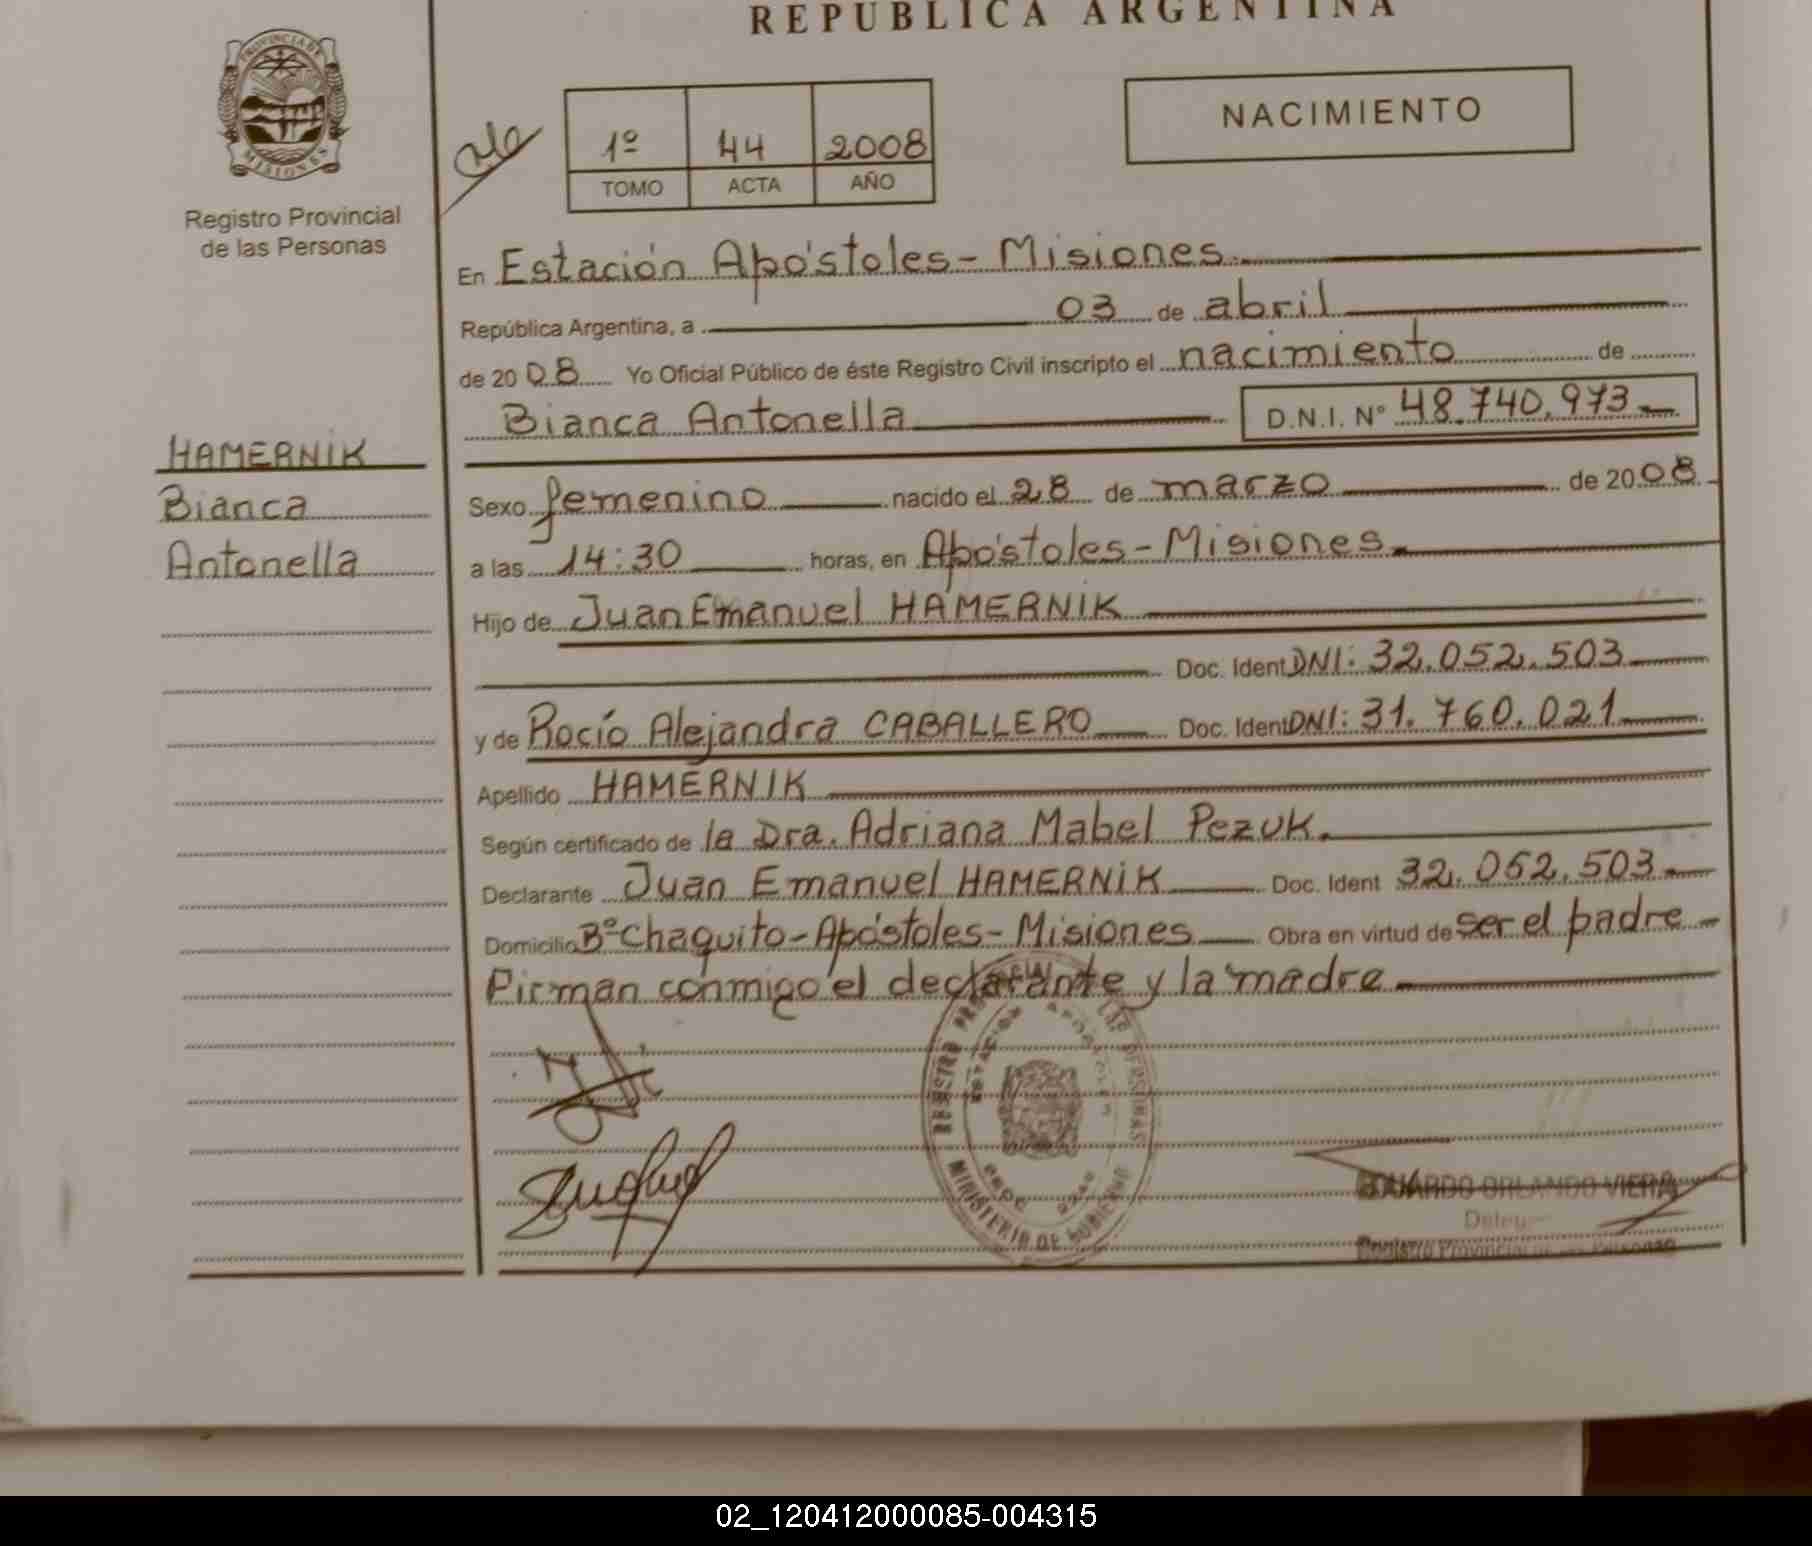 REPUBLICA ARGENTINA
PROVINCIA DE
MISIONES
Registro Provincial
de las Personas
1º 44 2008
TOMO ACTA AÑO
NACIMIENTO
En Estación Apóstoles - Misiones.
República Argentina, a 03 de abril
de 2008 Yo Oficial Público de éste Registro Civil inscripto el nacimiento de
Bianca Antonella D.N.I. Nº 48.740.973
HAMERNIK
Bianca
Antonella
Sexo femenino nacido el 28 de marzo de 2008
a las 14:30 horas, en Apóstoles - Misiones.
Hijo de Juan Emanuel HAMERNIK
Doc. Ident DNI: 32.052.503
y de Rocío Alejandra CABALLERO Doc. Ident DNI: 31.760.021
Apellido HAMERNIK
Según certificado de la Dra. Adriana Mabel Pezuk.
Declarante Juan Emanuel HAMERNIK Doc. Ident 32.052.503
Domicilio Bº Chaquito - Apóstoles - Misiones Obra en virtud de ser el padre
Firman conmigo el declarante y la madre
REGISTRO PROVINCIAL DE LAS PERSONAS
ESTACION APOSTOLES
MINISTERIO DE GOBIERNO
EDUARDO ORLANDO VIERA
Registro Provincial de las Personas
02_120412000085-004315